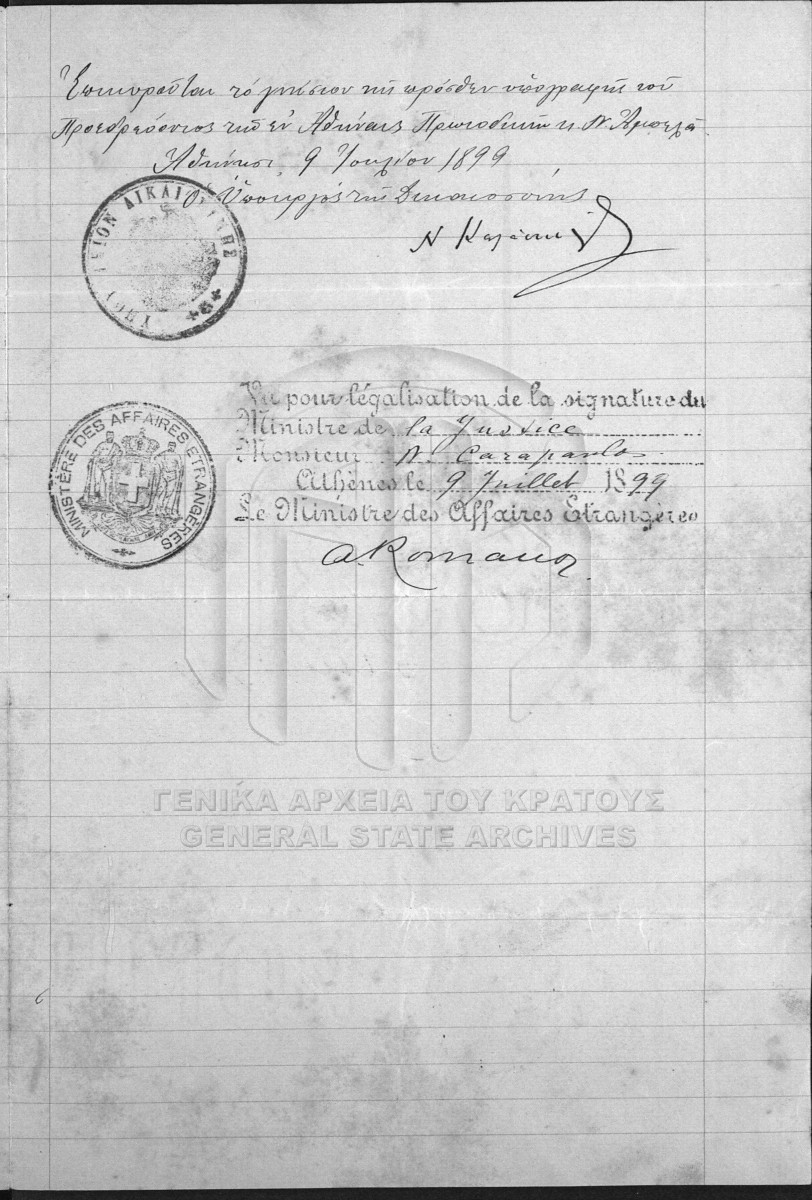 Ἐπικυροῦται τὸ γνήσιον τῆς πρόσθεν ὑπογραφῆς τοῦ
Προεδρεύοντος τῶν ἐν Ἀθήναις Πρωτοδικῶν κ. Ν.
Ἀθήνησι, 9 Ἰουλίου 1899
Ὁ Ὑπουργὸς τῆς Δικαιοσύνης
Ν
ΥΠΟΥΡΓΕΙΟΝ ΔΙΚΑΙΟΣΥΝΗΣ
Vu pour légalisation de la signature du
Ministre de la Justice
Monsieur A. Carapanlos
Athènes le 9 Juillet 1899
Le Ministre des Affaires Etrangères
A. Romanos
MINISTÈRE DES AFFAIRES ETRANGÈRES
ΓΕΝΙΚΑ ΑΡΧΕΙΑ ΤΟΥ ΚΡΑΤΟΥΣ
GENERAL STATE ARCHIVES